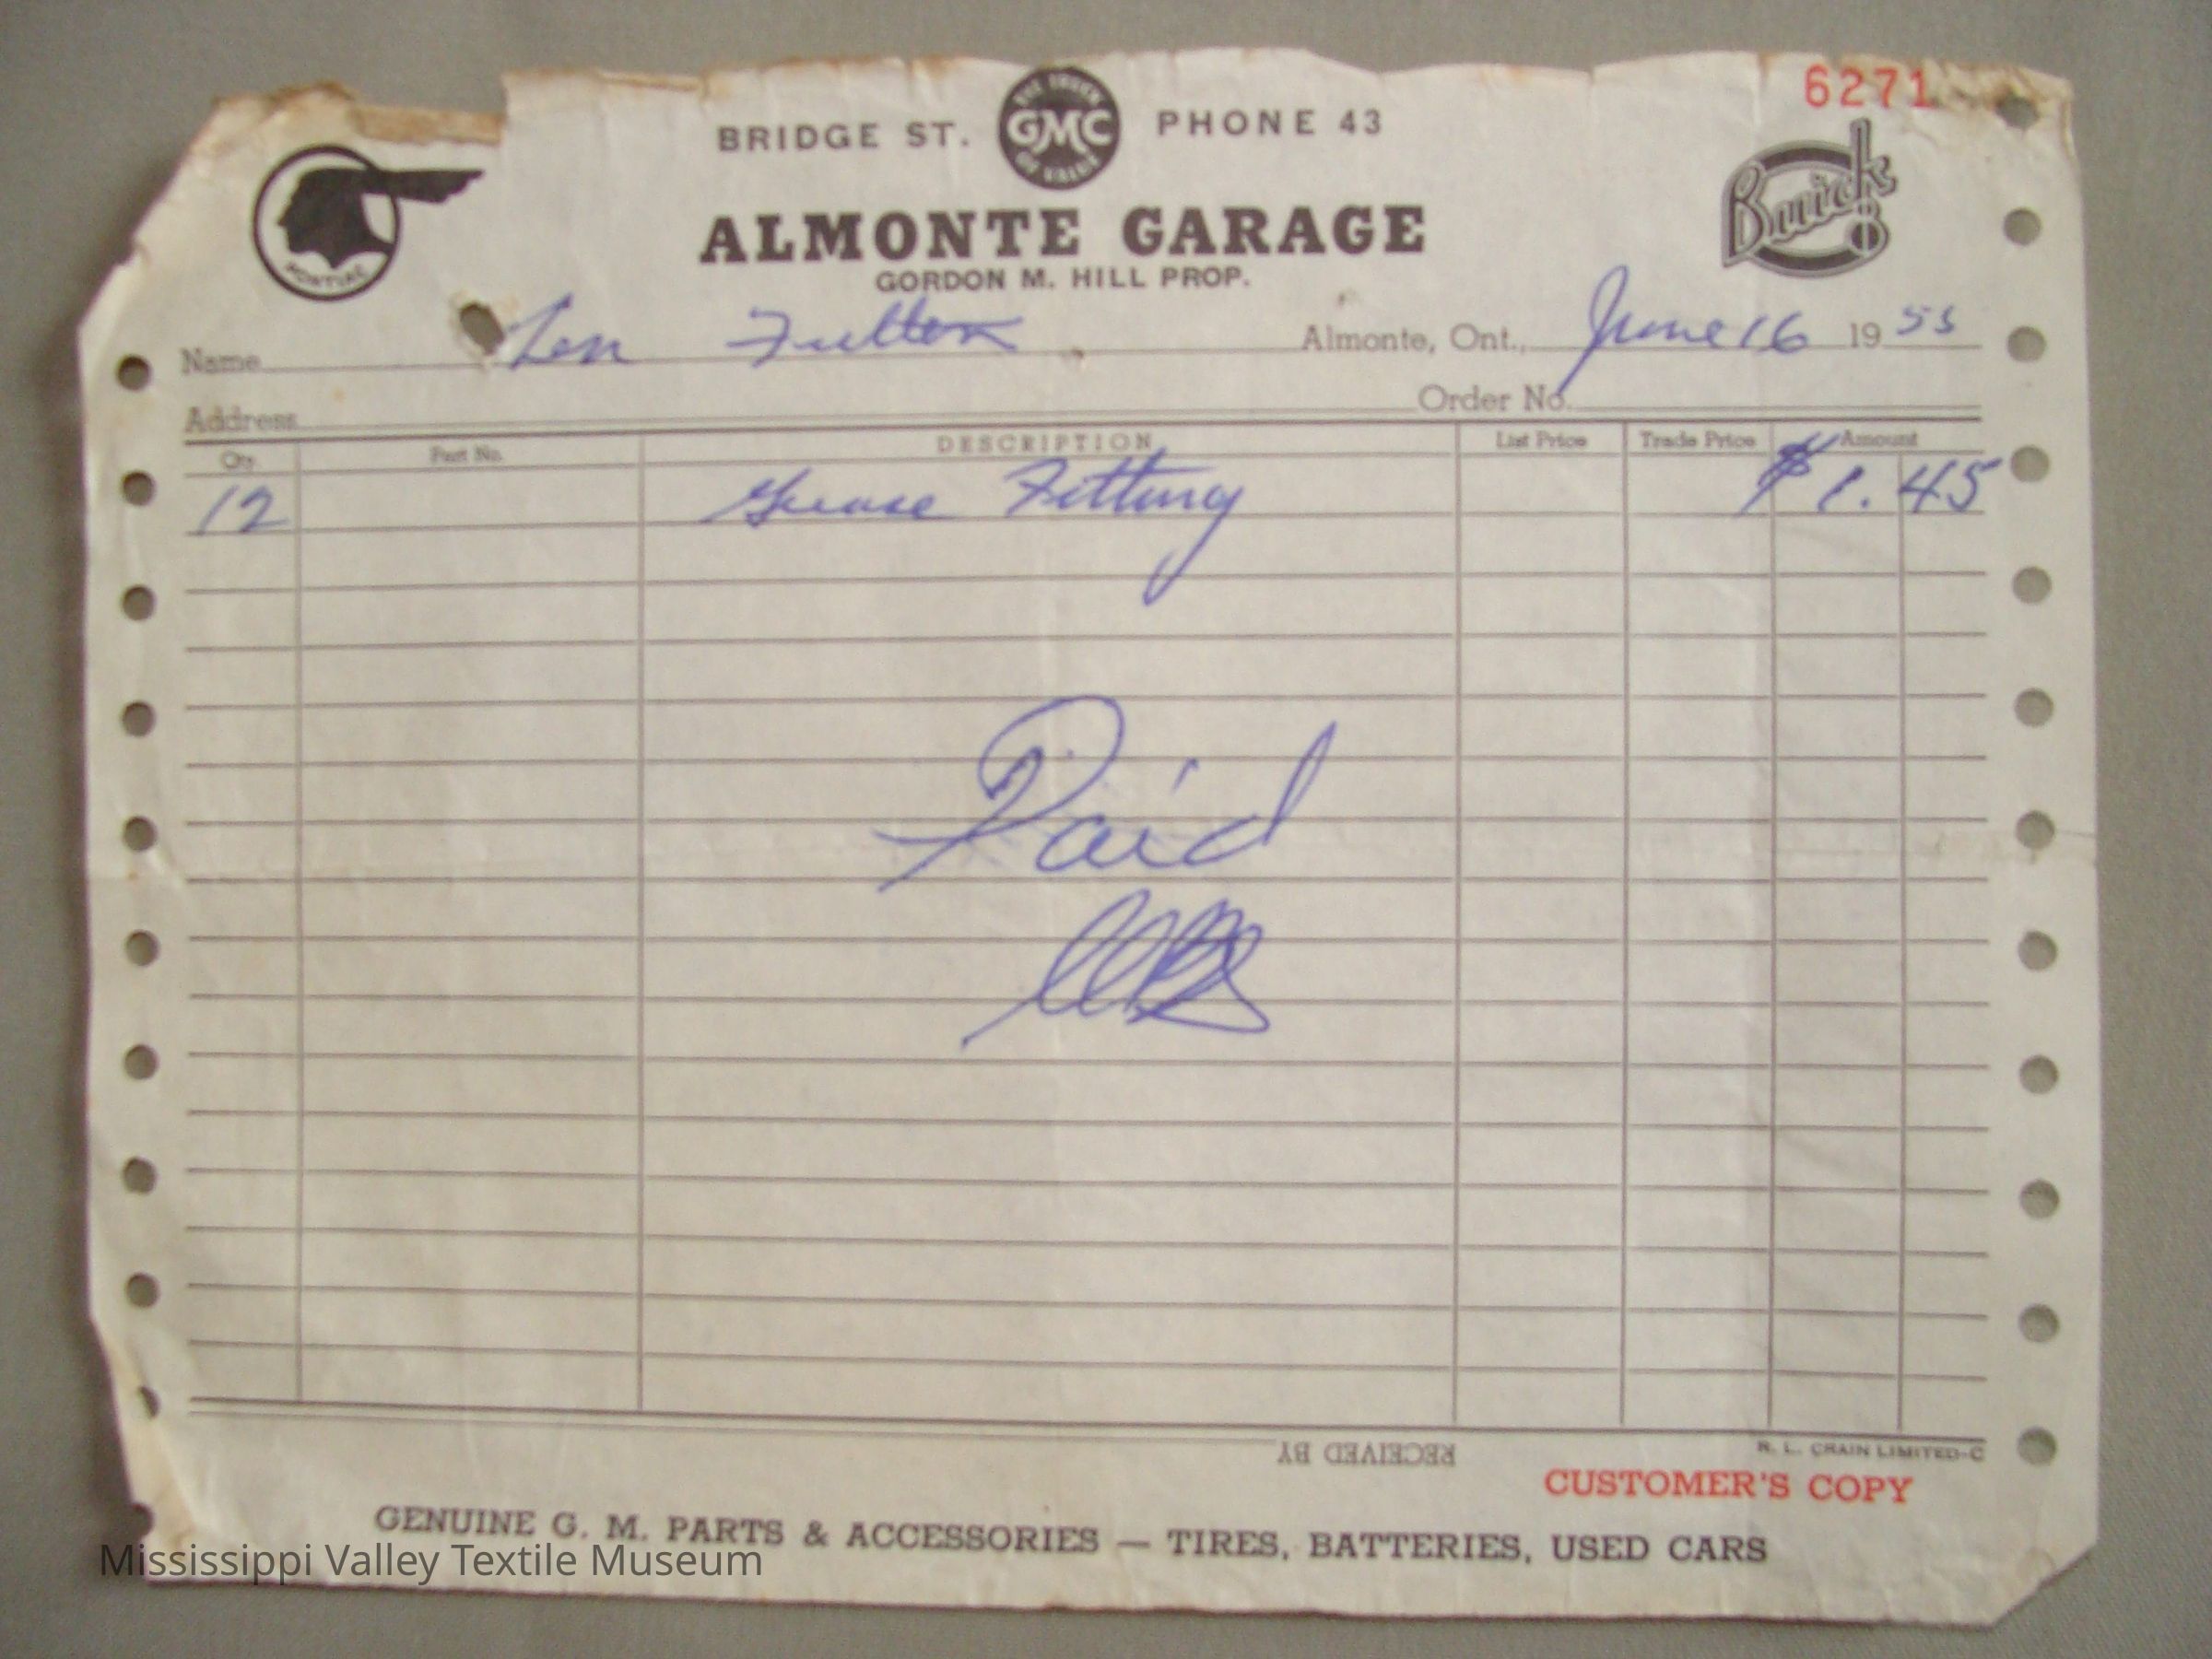 6271
BRIDGE ST. GMC PHONE 43
THE TRUCK OF VALUE
PONTIAC
Buick 8
ALMONTE GARAGE
GORDON M. HILL PROP.
Name Len Fulton Almonte, Ont., June 16 19 55
Address Order No.
Qty. Part No. DESCRIPTION List Price Trade Price Amount
12 Grease Fitting $1.45
Paid
RECEIVED BY
R. L. CRAIN LIMITED-C
CUSTOMER'S COPY
GENUINE G. M. PARTS & ACCESSORIES — TIRES, BATTERIES, USED CARS
Mississippi Valley Textile Museum